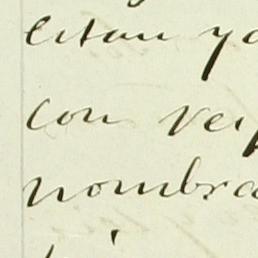 citan ya
con res
nombra